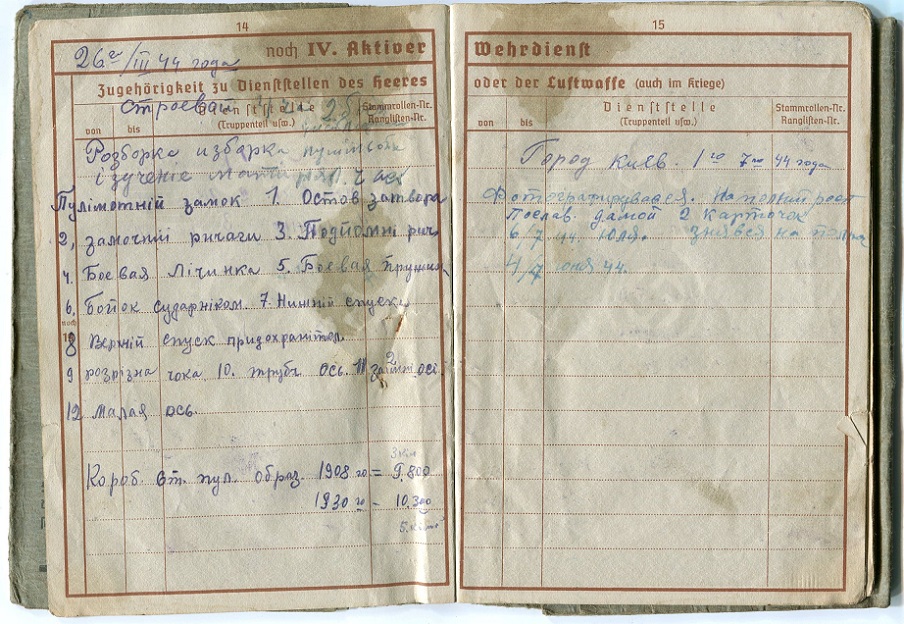 14
noch IV. Aktiver
26го/III 44 года
Zugehörigkeit zu Dienststellen des Heeres
строевая
von bis Dienststelle (Truppenteil usw.) Stammrollen-Nr. Ranglisten-Nr.
Розборка избарка
ізучение
Пулімотній замок 1. Остов затвора
2, замочнії ричаги 3. Подйомні рич.
4. Боевая Лічинка 5. Боевая Пружина
6. Бойок сударніком. 7. Нижній спуск
noch
8 Верній спуск придохранітел.
9 розрізна чока 10. трубч. ось. 11 ось
12 Малая ось.
Короб. ст. пул. образ. 1908 го = 9.800
1930 го = 10.300
15
Wehrdienst
oder der Luftwaffe (auch im Kriege)
von bis Dienststelle (Truppenteil usw.) Stammrollen-Nr. Ranglisten-Nr.
Город Киев. 1го 7го 44 года
Фотографирувався. На полний рост
Послав. дамой 2 карточок
6/7 44. Юля. знявся на
4/7 юля 44.